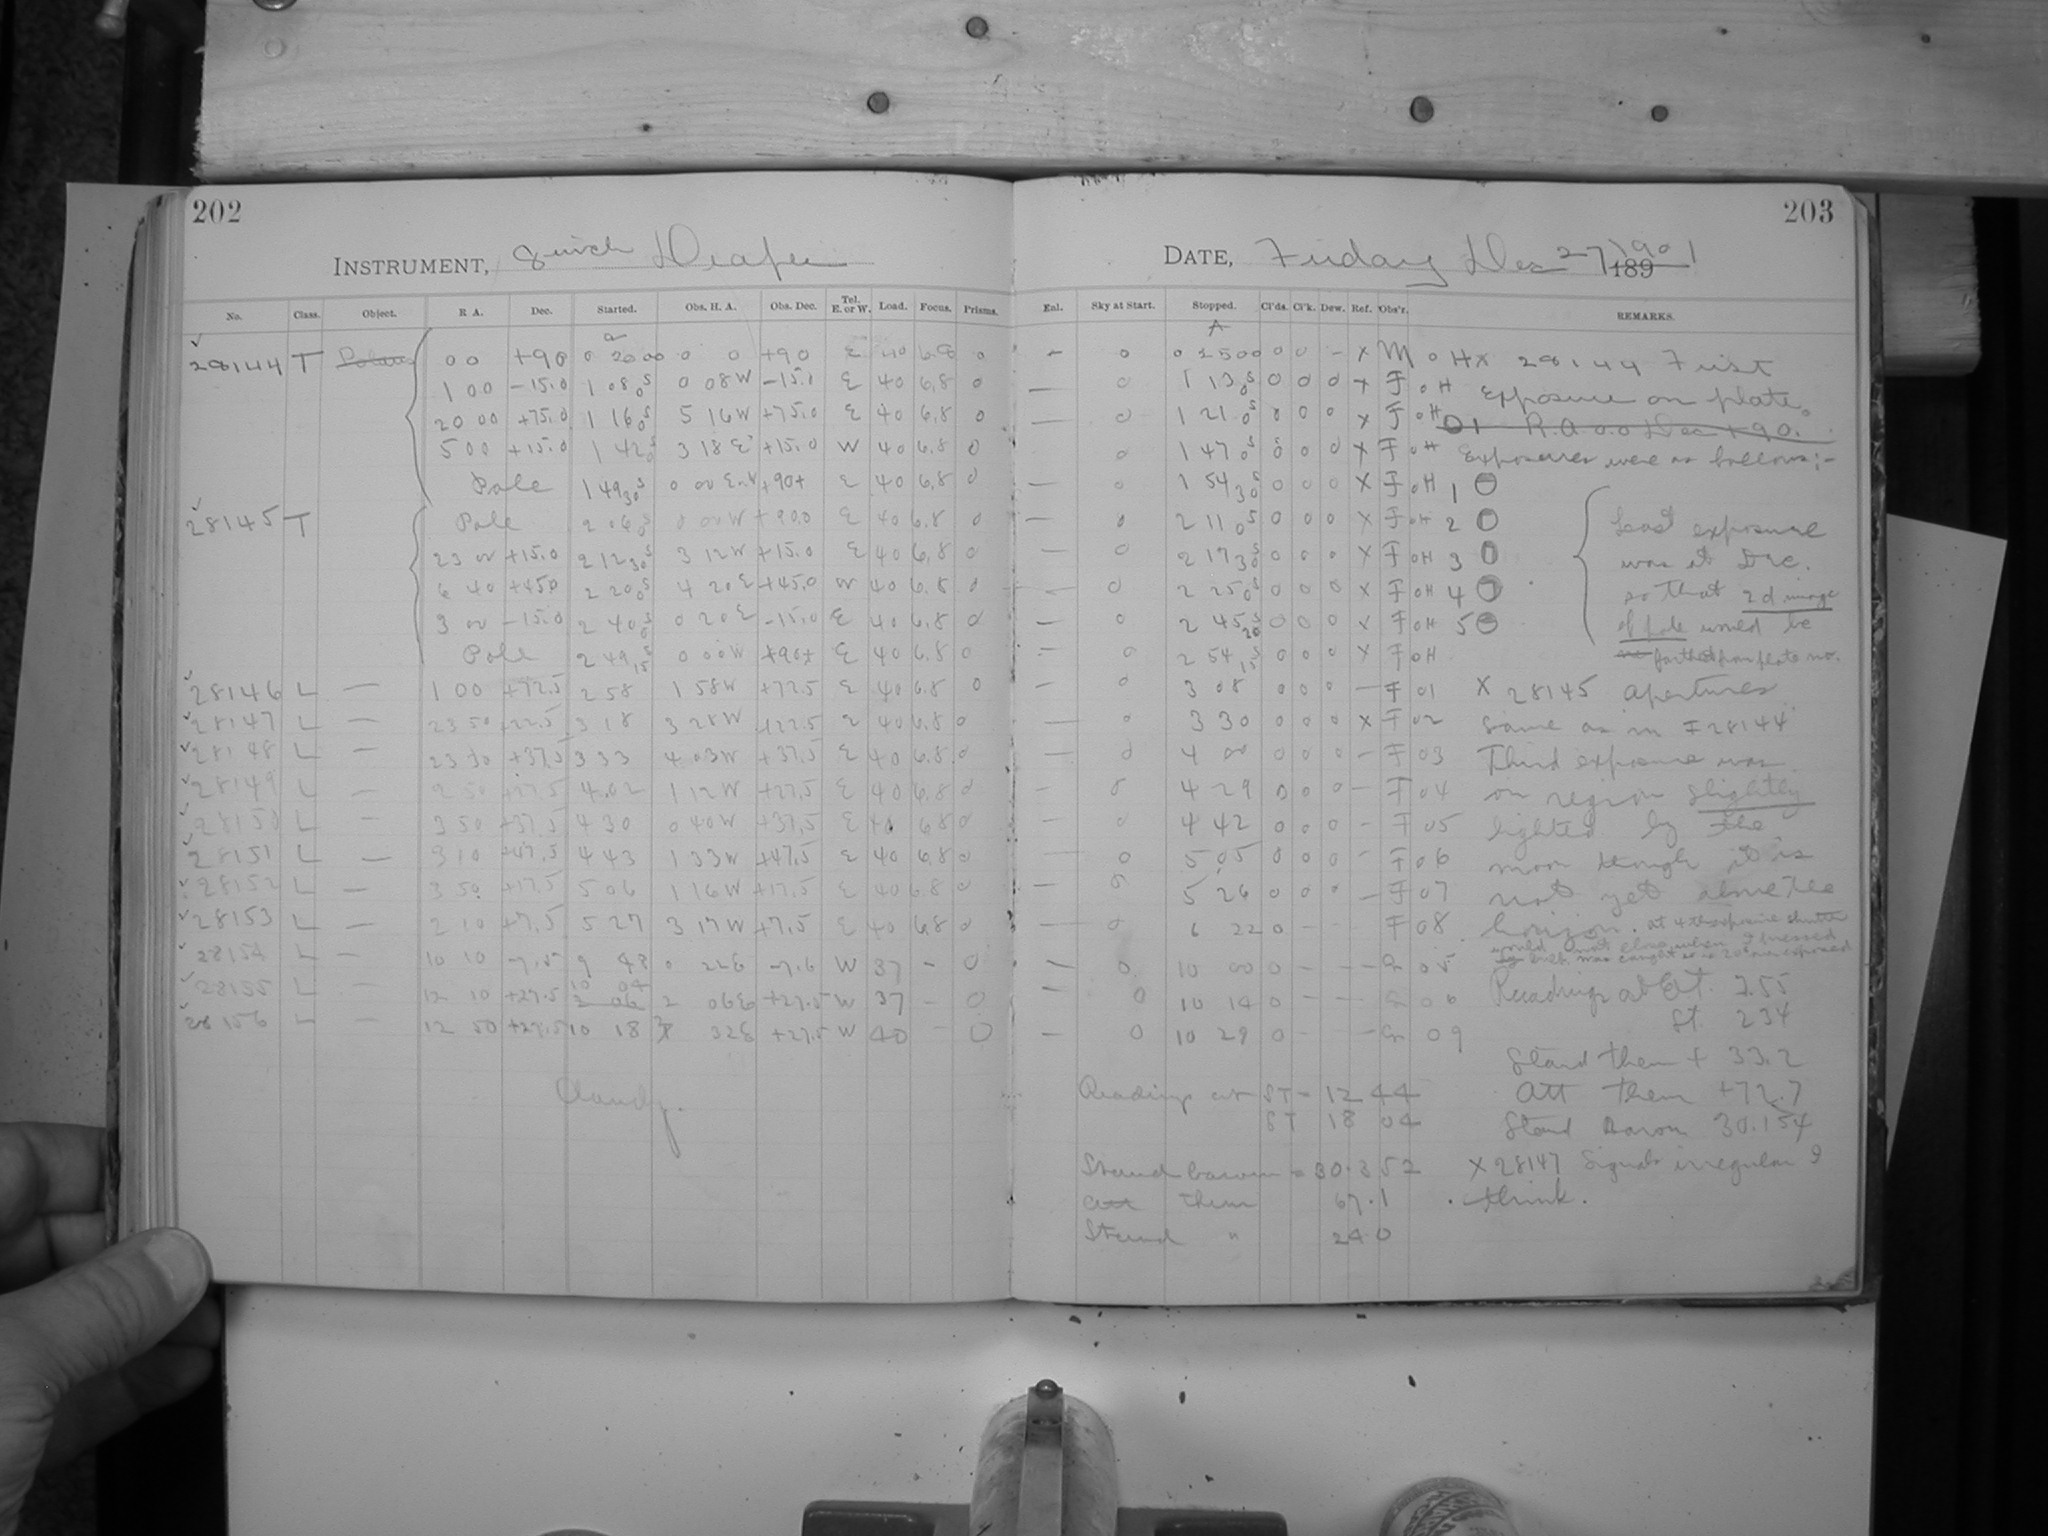 202
203
INSTRUMENT, 8 inch Draper
DATE, Friday Dec 27 1901 189
No. Class. Object. R A. Dec. Started. Obs. H. A. Obs. Dec. Tel. E. or W. Load. Focus. Prisms.
Enl. Sky at Start. Stopped. Cl'ds. Cl'k. Dew. Ref. Obs'r. REMARKS.
28144 T 0 0 +90 0 20 00 0 0 +90 E 40 6.8 0
1 00 -15.0 1 08 0s 0 08W -15.0 E 40 6.8 0
20 00 +75.0 1 16 0s 5 16W +75.0 E 40 6.8 0
5 00 +15.0 1 42 0s 3 18 E +15.0 W 40 6.8 0
Pole 1 49 30s 0 00 +90+ E 40 6.8 0
28145 T Pole 2 06 0s 0 00W +90.0 E 40 6.8 0
23 00 +15.0 2 12 30s 3 12W +15.0 E 40 6.8 0
6 40 +45.0 2 20 0s 4 20E +45.0 W 40 6.8 0
3 00 -15.0 2 40 0 20E -15.0 E 40 6.8 0
Pole 2 49 15s 0 00W +90+ E 40 6.8 0
28146 L — 1 00 +72.5 2 58 1 58W +72.5 E 40 6.8 0
28147 L — 23 50 +22.5 3 18 3 28W +22.5 E 40 6.8 0
28148 L — 23 30 +37.5 3 33 4 03W +37.5 E 40 6.8 0
28149 L — 2 50 +27.5 4 02 1 12W +27.5 E 40 6.8 0
28150 L — 3 50 +37.5 4 30 0 40W +37.5 E 40 6.8 0
28151 L — 3 10 +47.5 4 43 1 33W +47.5 E 40 6.8 0
28152 L — 3 50 +17.5 5 06 1 16W +17.5 E 40 6.8 0
28153 L — 2 10 +7.5 5 27 3 17W +7.5 E 40 6.8 0
28154 L — 10 10 -7.5 9 48 0 22E -7.6 W 37 - 0
28155 L — 12 10 +27.5 10 04 2 06E +27.5 W 37 - 0
28156 L — 12 50 +27.5 10 18 32E +27.5 W 40 - 0
Cloudy.
— 0 0 25 00 0 0 - x M 0H x 28144 First
— 0 1 13 0s 0 0 0 x F 0H Exposure on plate.
— 0 1 21 0s 0 0 x F 0H 01 R.A 0.0 Dec +90.
0 1 47 0s 0 0 x F 0H Exposures were as follows;-
— 0 1 54 30s 0 0 0 x F 0H 1
— 0 2 11 0s 0 0 0 x F 0H 2 Last exposure
— 0 2 17 30s 0 0 0 x F 0H 3 was at Dec.
— 0 2 25 0s 0 0 0 x F 0H 4 so that 2d image
— 0 2 45 0 0 0 x F 0H 5 of pole would be
— 0 2 54 15s 0 0 0 x F 0H farthest from plate no.
— 0 3 08 0 0 0 — F 01 X 28145 apertures
— 0 3 30 0 0 0 x F 02 same as in I 28144
— 0 4 00 0 0 0 — F 03 Third exposure was
— 0 4 29 0 0 0 — F 04 on region slightly
0 4 42 0 0 0 - F 05 lighted by the
— 0 5 05 0 0 0 - F 06 moon though it is
— 0 5 26 0 0 0 — F 07 not yet above the
— 0 6 22 0 - - F 08 horizon. at 4th exposure shutter
would not close when I pressed
bulb. was caught so is 20 min exposed
— 0 10 00 0 - - - 05
— 0 10 14 0 - - - 06 Readings at St. 2.55
St. 234
— 0 10 29 0 - - - 09
Stand them + 33.2
Reading at ST = 12 44 Att them +72.7
ST 18 04 Stand Barom 30.154
Stand barom = 30.352 X 28147 Signals irregular I
att them 67.1 think.
Stand " 24.0